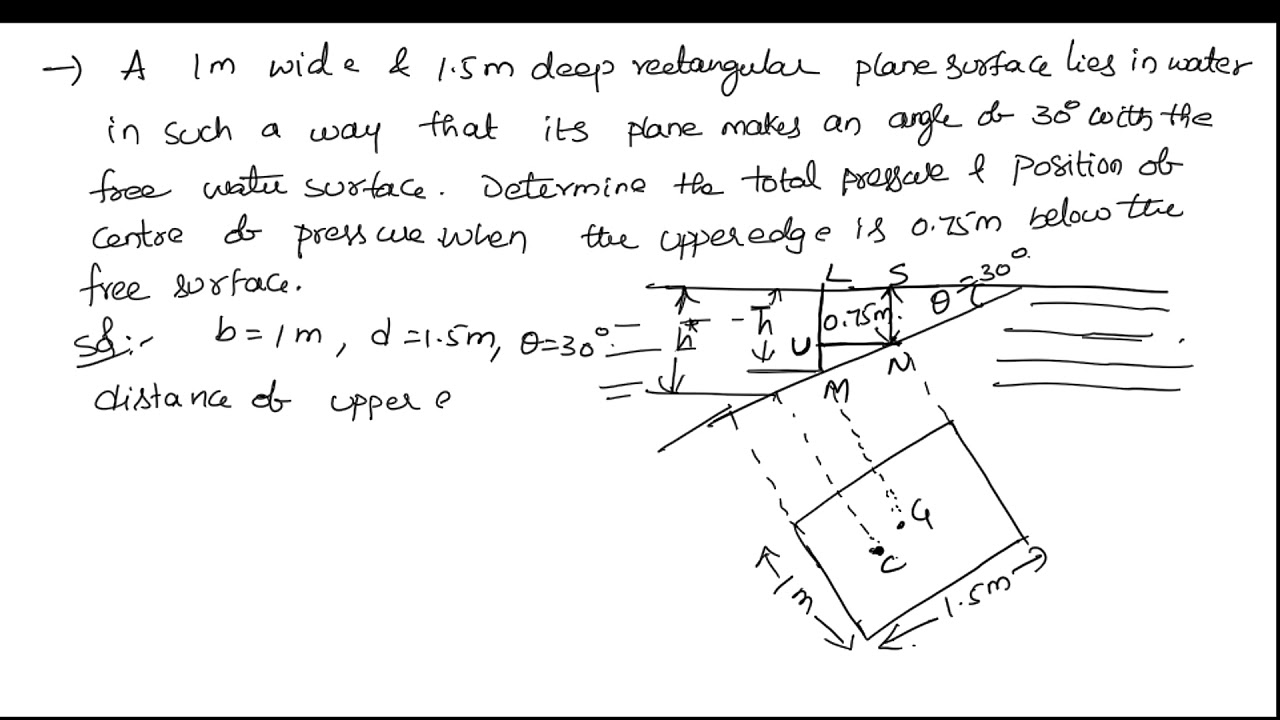 → A 1m wide & 1.5m deep rectangular plane surface lies in water
in such a way that its plane makes an angle of 30° with the
free water surface. Determine the total pressure & position of
centre of pressure when the upper edge is 0.75m below the
free surface.
L S 30°
θ
Sol:- b = 1m, d = 1.5m, θ = 30°.
h* h 0.75m.
U
M N
distance of upper e
G
C
1m
1.5m